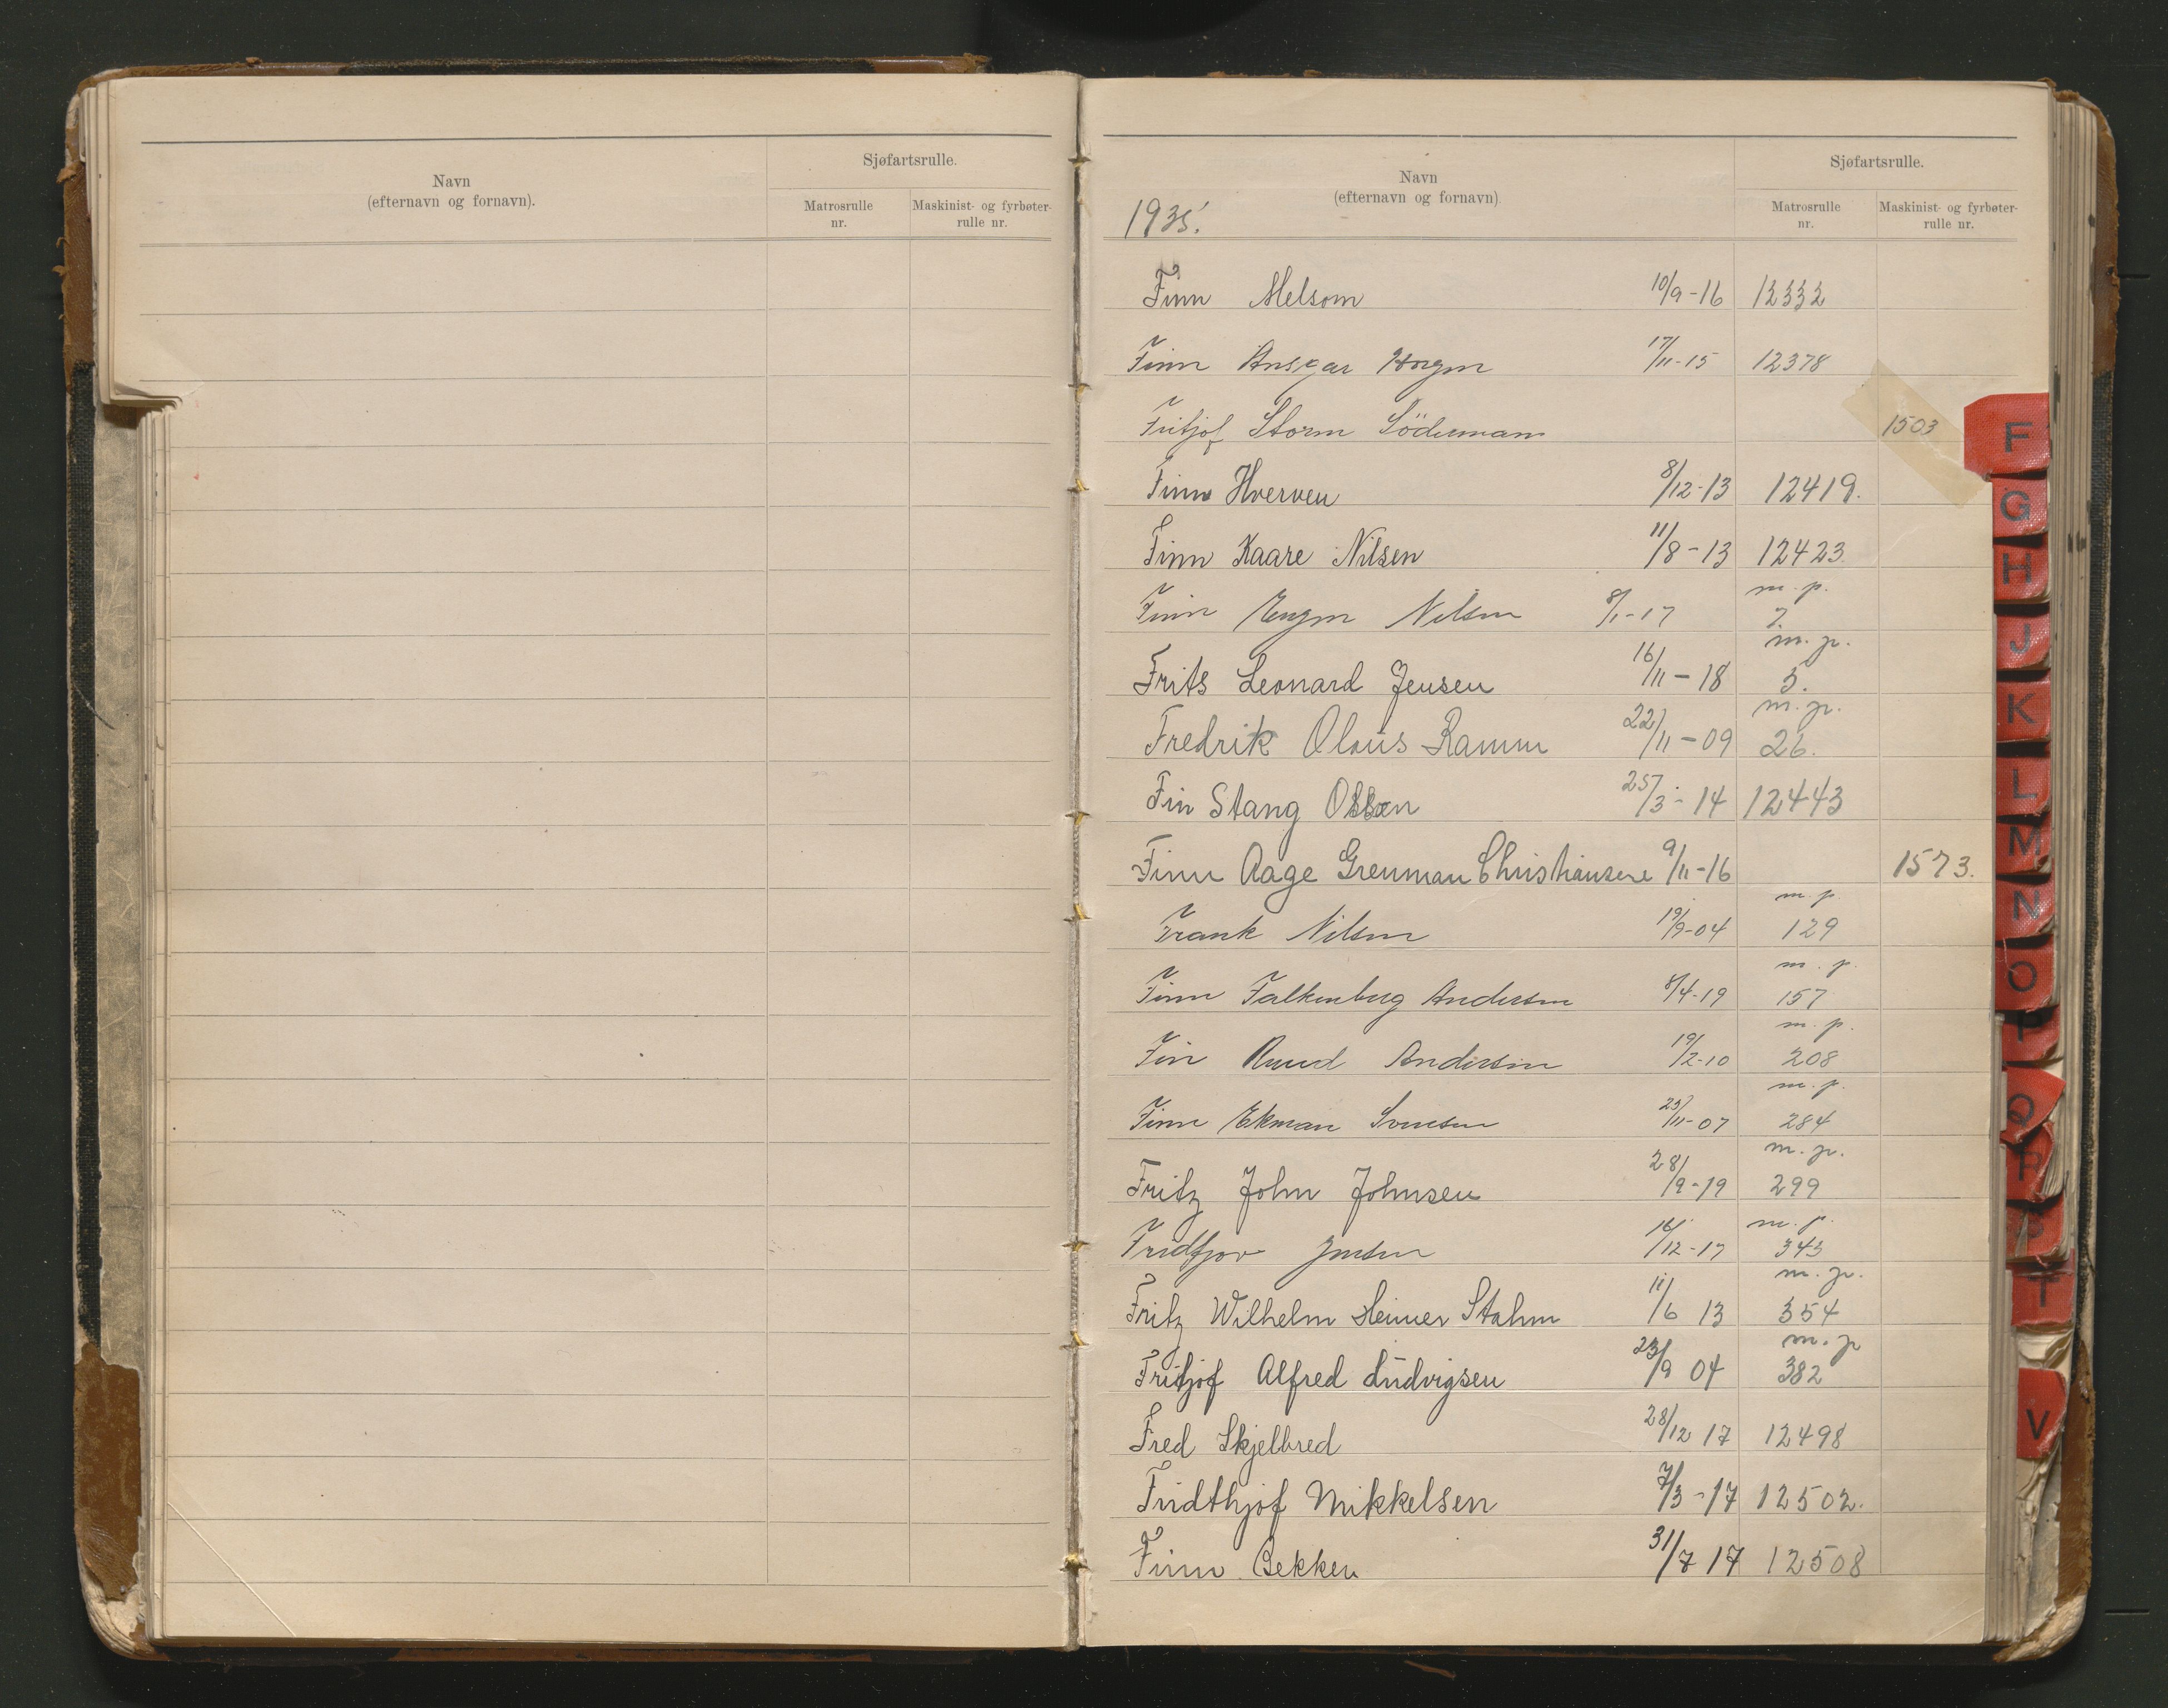 Navn
(efternavn og fornavn).
Sjøfartsrulle.
Matrosrulle
nr.
Maskinist- og fyrbøter-
rulle nr.
1935.
Navn
(efternavn og fornavn)
Sjøfartsrulle.
Matrosrulle
nr.
Maskinist- og fyrbøter-
rulle nr.
Finn Melsom 10/9-16 12332
Finn Ansgar 17/11-15 12378
Fritjof Storm Södermann 1503
Finn Hverven 8/12-13 12419.
Finn Kaare Nilsen 11/8-13 12423
m.p.
Finn Eugen Nilsen 8/1-17 7.
m.p.
Frits Leonard Jensen 16/11-18 5.
m.p.
Fredrik Olaus Ramm 22/11-09 26.
Fin Stang Olsen 25/3-14 12443
Finn Aage Grenman Christiansen 9/11-16 1573.
m.p.
Frank Nilsen 19/9-04 129
m.p.
Finn Falkenberg Andersen 8/4-19 157
m.p.
Fin Ruud Andersen 19/2-10 208
m.p.
Finn Ekman Svensen 25/11-07 284
m.p.
Fritz John Johnsen 28/9-19 299
m.p.
Fridtjov Jensen 16/12-17 343
m.p.
Fritz Wilhelm Heimer Stahm 11/6 13 354
m.p
Fritjof Alfred Ludvigsen 23/9 04 382
Fred Skjelbred 28/12 17 12498
Fridthjof Mikkelsen 7/3-17 12502.
Finn Bekken 31/7 17 12508
F
G
H
J
K
L
M
N
O
P
Q
R
S
T
V